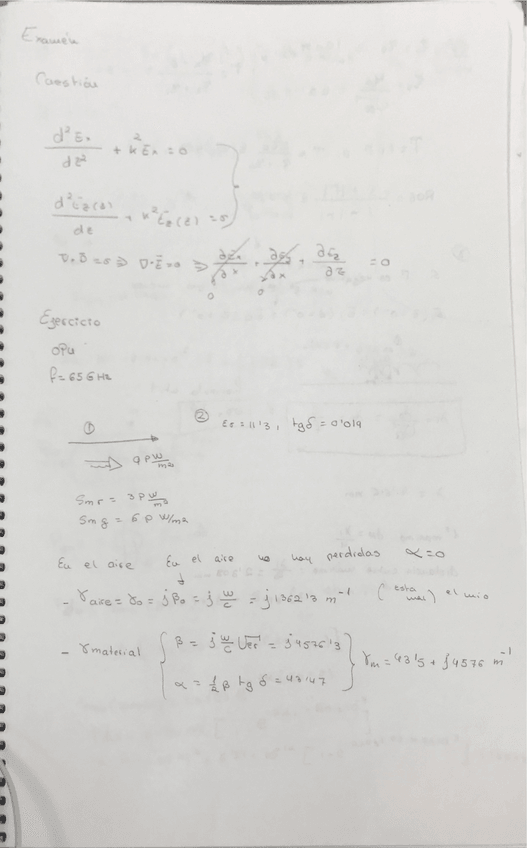 Examén
Cuestión
d²Ex/dz² + k²Ex = 0
d²Ez(z)/dz + k²Ez(z) = 0
∇·D = 0 ⇒ ∇·E = 0 ⇒ ∂Ex/∂x + ∂Ey/∂x + ∂Ez/∂z = 0
0 0
Ejercicio
OPU
f = 65 GHz
① ② Er = 11'3, tgδ = 0'019
9 p W/m²
Smr = 3 p W/m²
Smg = 6 p W/m2
En el aire En el aire no hay perdidas α = 0
- γaire = γ0 = jβ0 = j w/c = j 1362'3 m⁻¹ (esta mal) el mio
- γmaterial { β = j w/c √er = j 4576'3
α = 1/2 β tg δ = 43'47 } γm = 43'5 + j 4576 m⁻¹